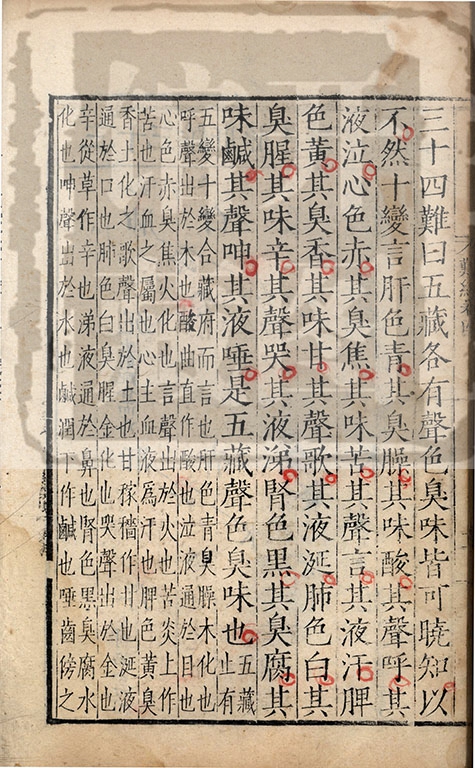 三十四難曰五藏各有聲色臭味皆可曉知以
不然十變言肝色青其臭臊其味酸其聲呼其
液泣心色赤其臭焦其味苦其聲言其液汗脾
色黃其臭香其味甘其聲歌其液涎肺色白其
臭腥其味辛其聲哭其液涕腎色黑其臭腐其
味鹹其聲呻其液唾是五藏聲色臭味也五藏
止有
五變十變合藏府而言也肝色青臭臊木化也
呼聲出於木也酸曲直作酸也泣液通於目也
心色赤臭焦火化也言聲出於火也苦炎上作
苦也汗血之屬也心主血液爲汗也脾色黃臭
香土化之歌聲出於土也甘稼穡作甘也涎液
通於口也肺色白臭腥金化也哭聲出於金也
辛從草作辛也涕液通於鼻也腎色黑臭腐水
化也呻聲出於水也鹹潤下作鹹也唾齒傍之